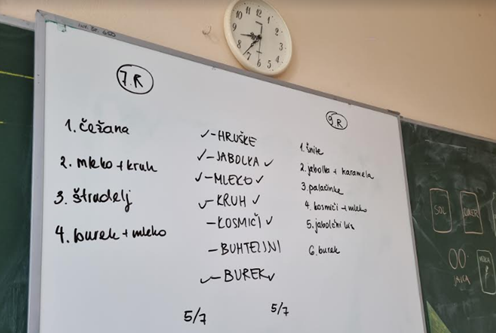 7. R
1. čežana
2. mleko + kruh
3. štrudelj
4. burek + mleko
✓ - HRUŠKE
✓ - JABOLKA ✓
✓ - MLEKO ✓
✓ - KRUH ✓
- KOSMIČI ✓
- BUHTELJNI
✓ - BUREK ✓
5/7
5/7
9. R
1. šnite
2. jabolka + karamela
3. palačinke
4. kosmiči + mleko
5. jabolčni
6. burek
12
11
10
9
8
7
6
5
4
3
2
1